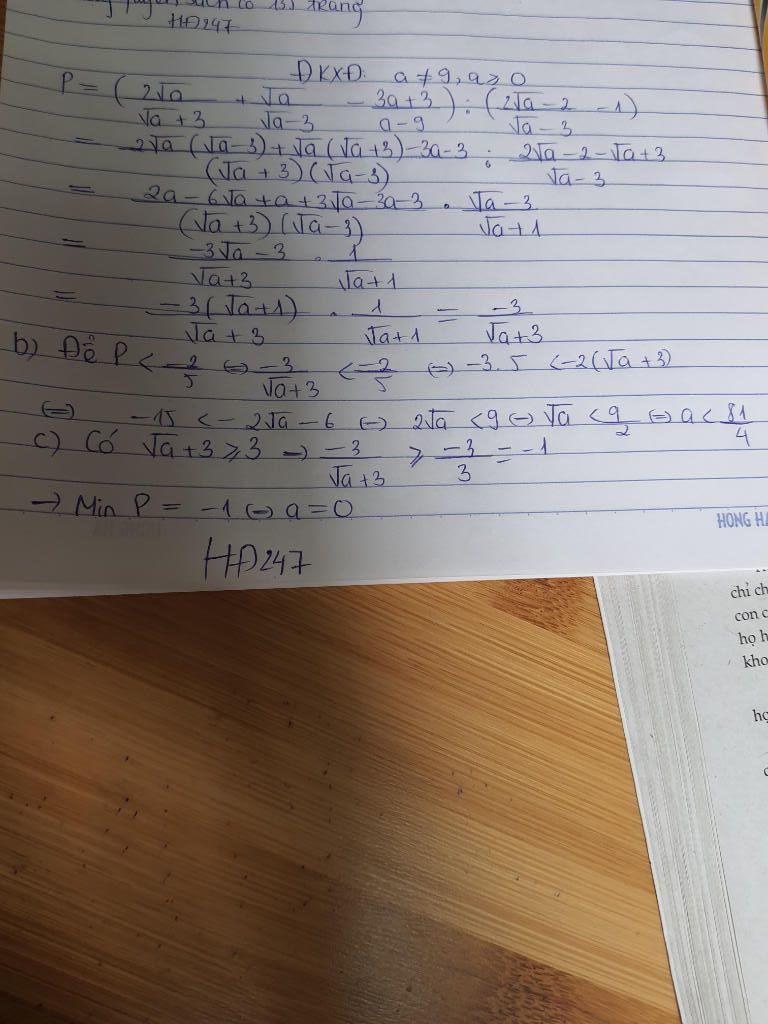 sách có 135 trang
HĐ247
ĐKXĐ: a ≠ 9, a ⩾ 0
P = (2√a/(√a + 3) + √a/(√a - 3) - (3a + 3)/(a - 9)) : ((2√a - 2)/(√a - 3) - 1)
= (2√a (√a - 3) + √a (√a + 3) - 3a - 3)/((√a + 3)(√a - 3)) : (2√a - 2 - √a + 3)/(√a - 3)
= (2a - 6√a + a + 3√a - 3a - 3)/((√a + 3)(√a - 3)) . (√a - 3)/(√a + 1)
= (-3√a - 3)/(√a + 3) . 1/(√a + 1)
= (-3(√a + 1))/(√a + 3) . 1/(√a + 1) = -3/(√a + 3)
b) Để P < -2/5 ⇔ -3/(√a + 3) < -2/5 ⇔ -3.5 < -2(√a + 3)
⇔ -15 < -2√a - 6 ⇔ 2√a < 9 ⇔ √a < 9/2 ⇔ a < 81/4
c) Có √a + 3 ⩾ 3 → -3/(√a + 3) ⩾ -3/3 = -1
→ Min P = -1 ⇔ a = 0
HONG HA
HĐ247
chỉ ch
con c
họ h
kho
họ